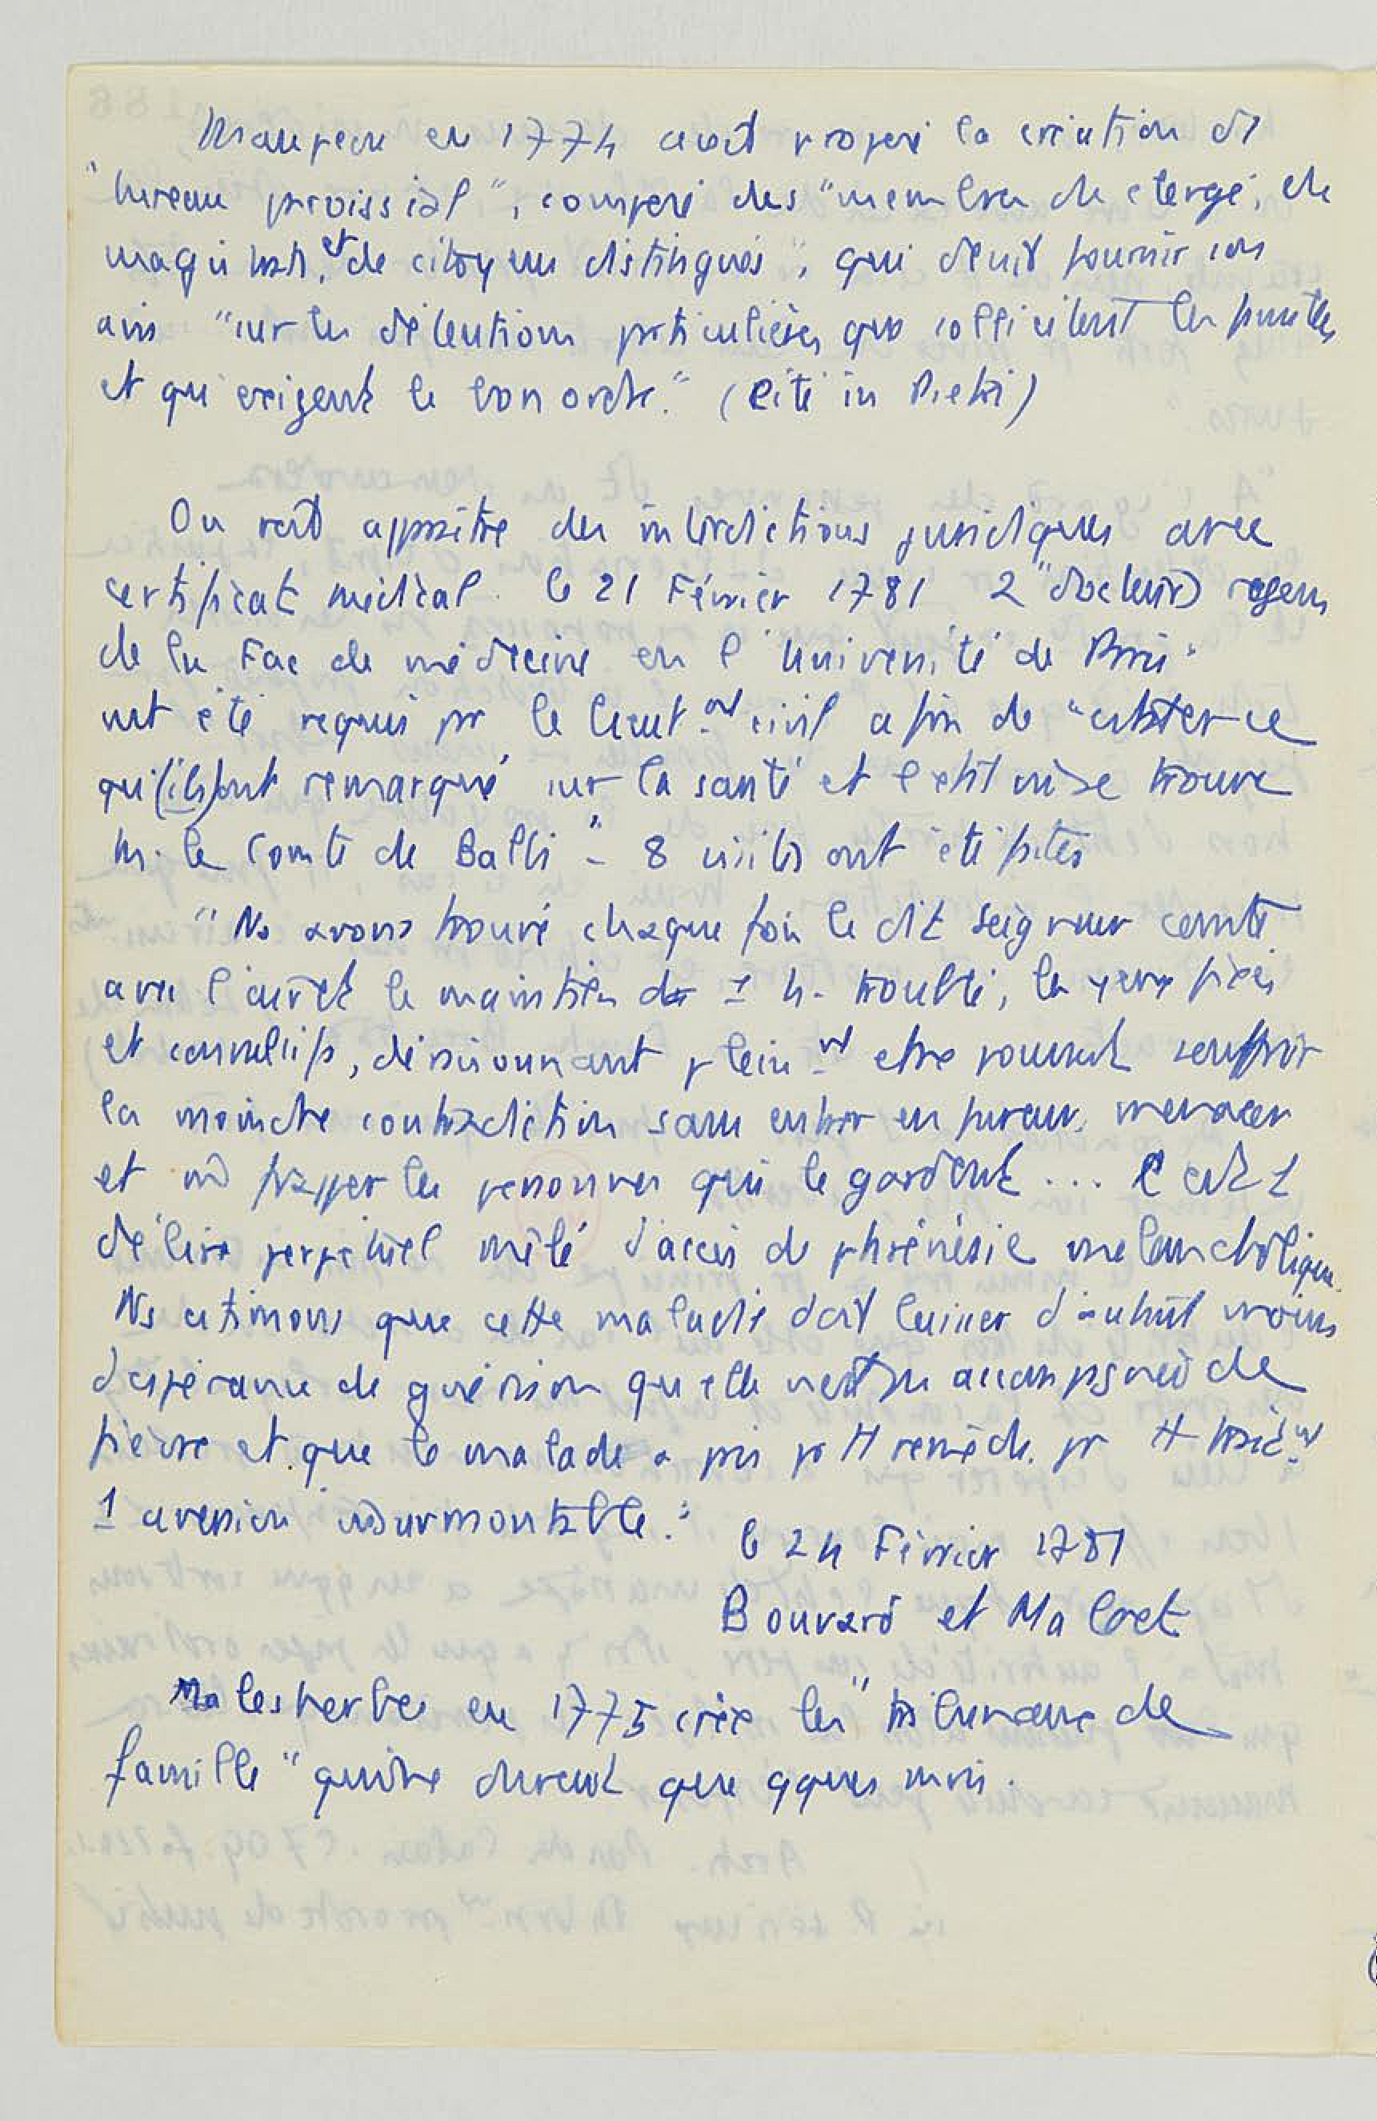 Maupeou en 1774 avait proposé la création d'1
"bureau paroissial", composé des "membres du clergé, de
magistrats, et de citoyens distingués", qui devait fournir son
avis "sur les détentions particulières que sollicitent les familles
et qui exigent le bon ordre." (Cité in Pietri)
On voit apparaître des interdictions juridiques avec
certificat médical. le 21 Février 1781 2 "docteurs regens
de la Fac de médecine en l'Université de Paris"
ont été requis pr le lieut-ant civil afin de "constater ce
qu'(ils) ont remarqué sur la santé et l'état où se trouve
M. le Comte de Balbi" - 8 visites ont été faites
"Ns avons trouvé chaque fois le dit Seigneur comte
avec l'air et le maintien d' 1 h. troublé, les yeux fixés
et convulsifs, déraisonnant plein-nt et ne pouvant souffrir
la moindre contradiction sans entrer en fureur, menacer
et où frapper les personnes qui le gardent... C'est 1
délire perpétuel mêlé d'accès de phrénésie mélancholique.
Ns estimons que cette maladie doit laisser d'autant moins
d'espérance de guérison qu'elle n'est pas accompagnée de
fièvre et que le malade a pris pr tt remède, pr tt
1 aversion insurmontable."
le 24 Février 1781
Bouvard et Maloet
Malesherbes en 1775 crée les "tribunaux de
famille" qui ne durent que qques mois.